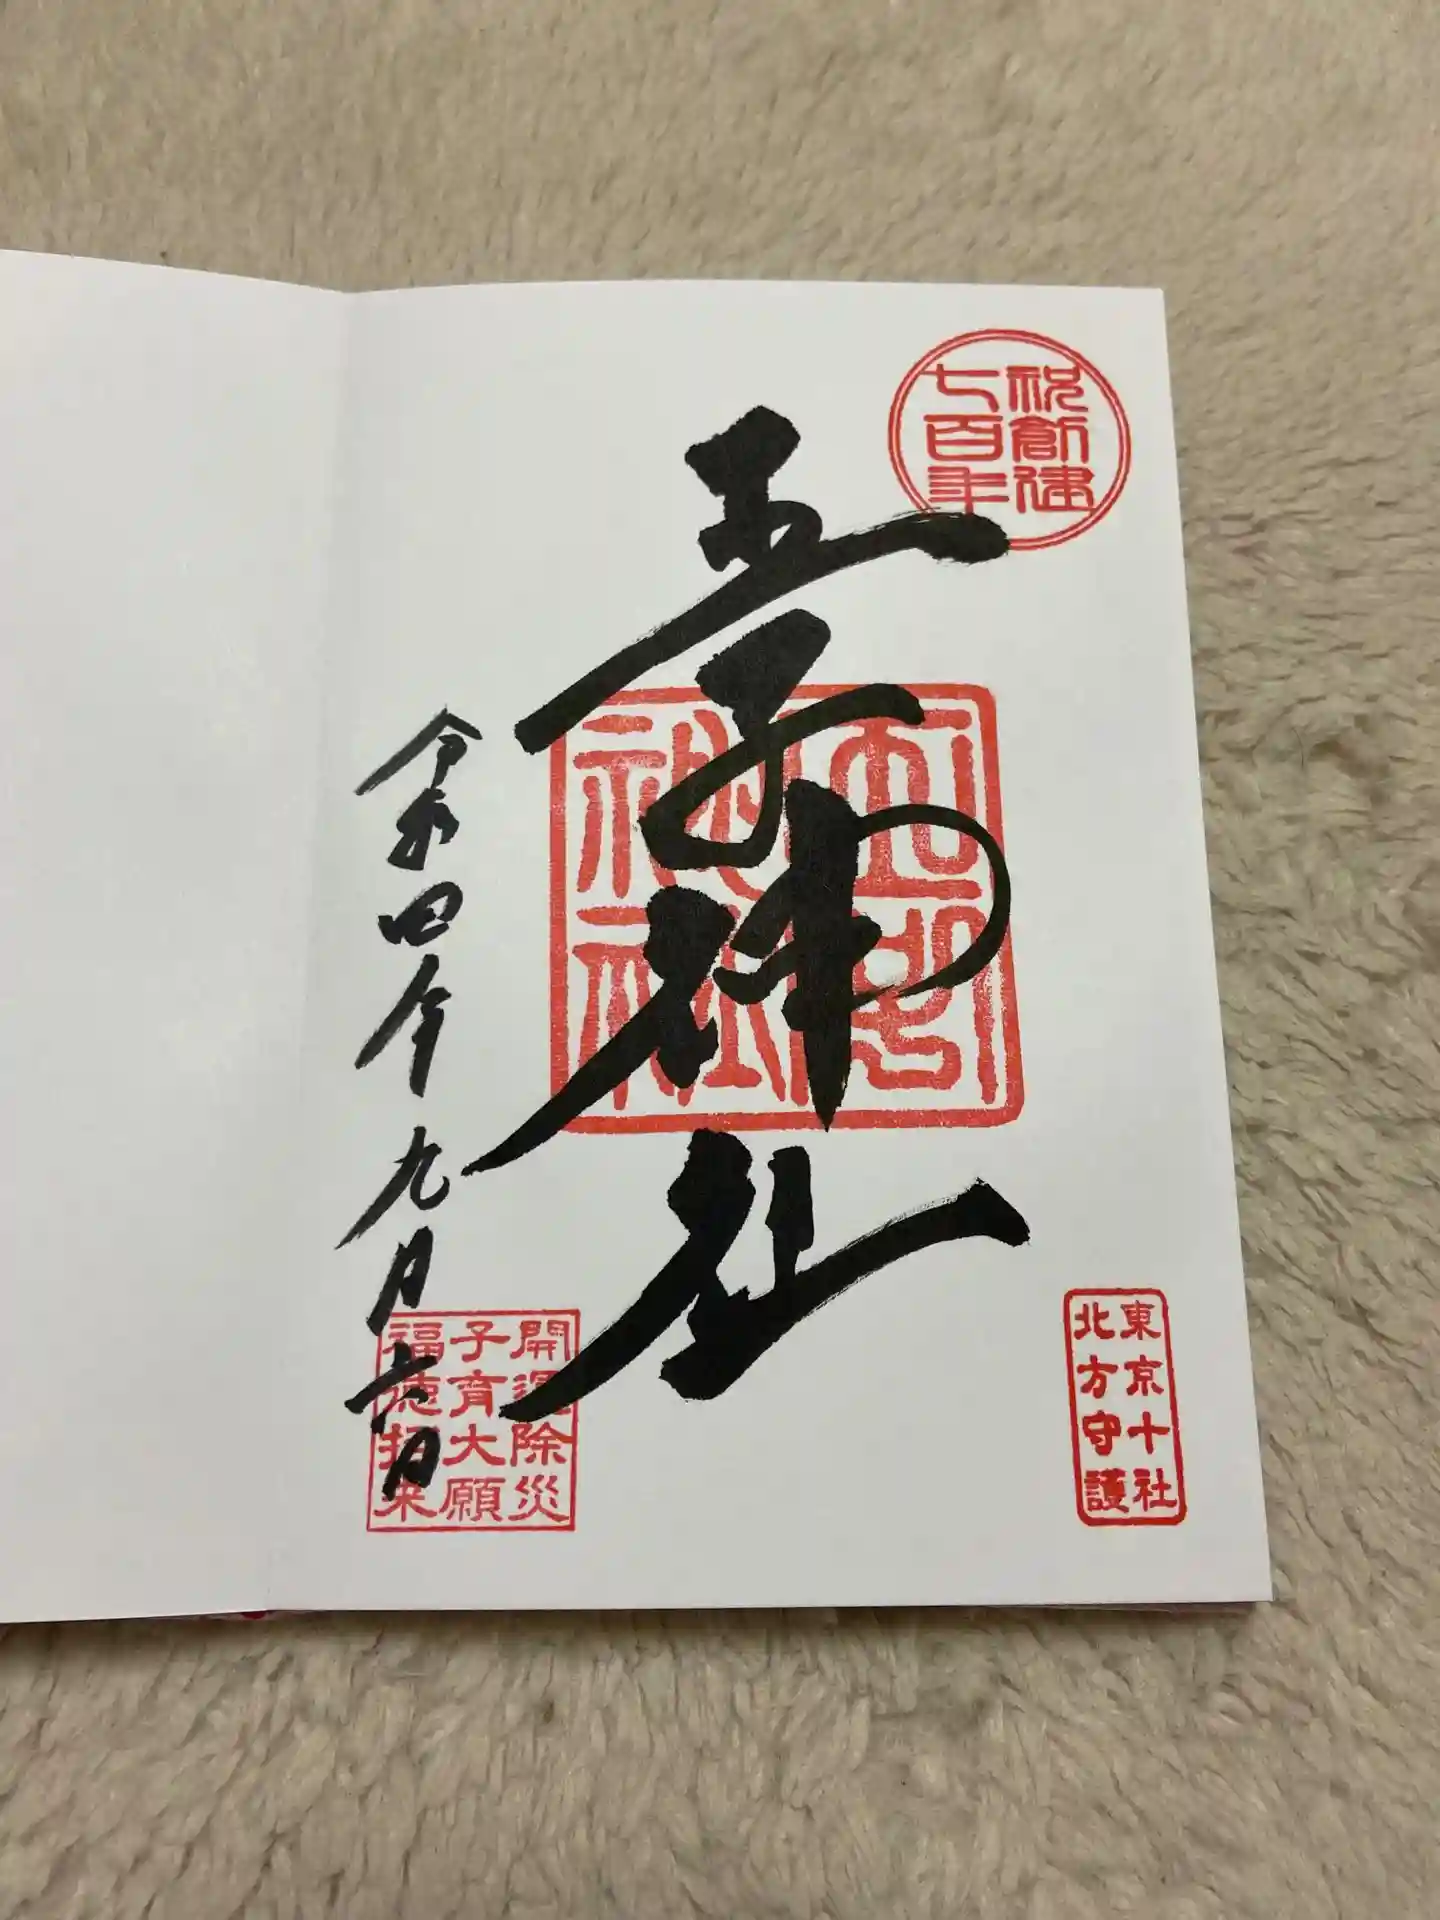 祝創建
七百年
王子神社
王子
神社
東京十社
北方守護
令和四年九月六日
開運除災
子育大願
福徳招来